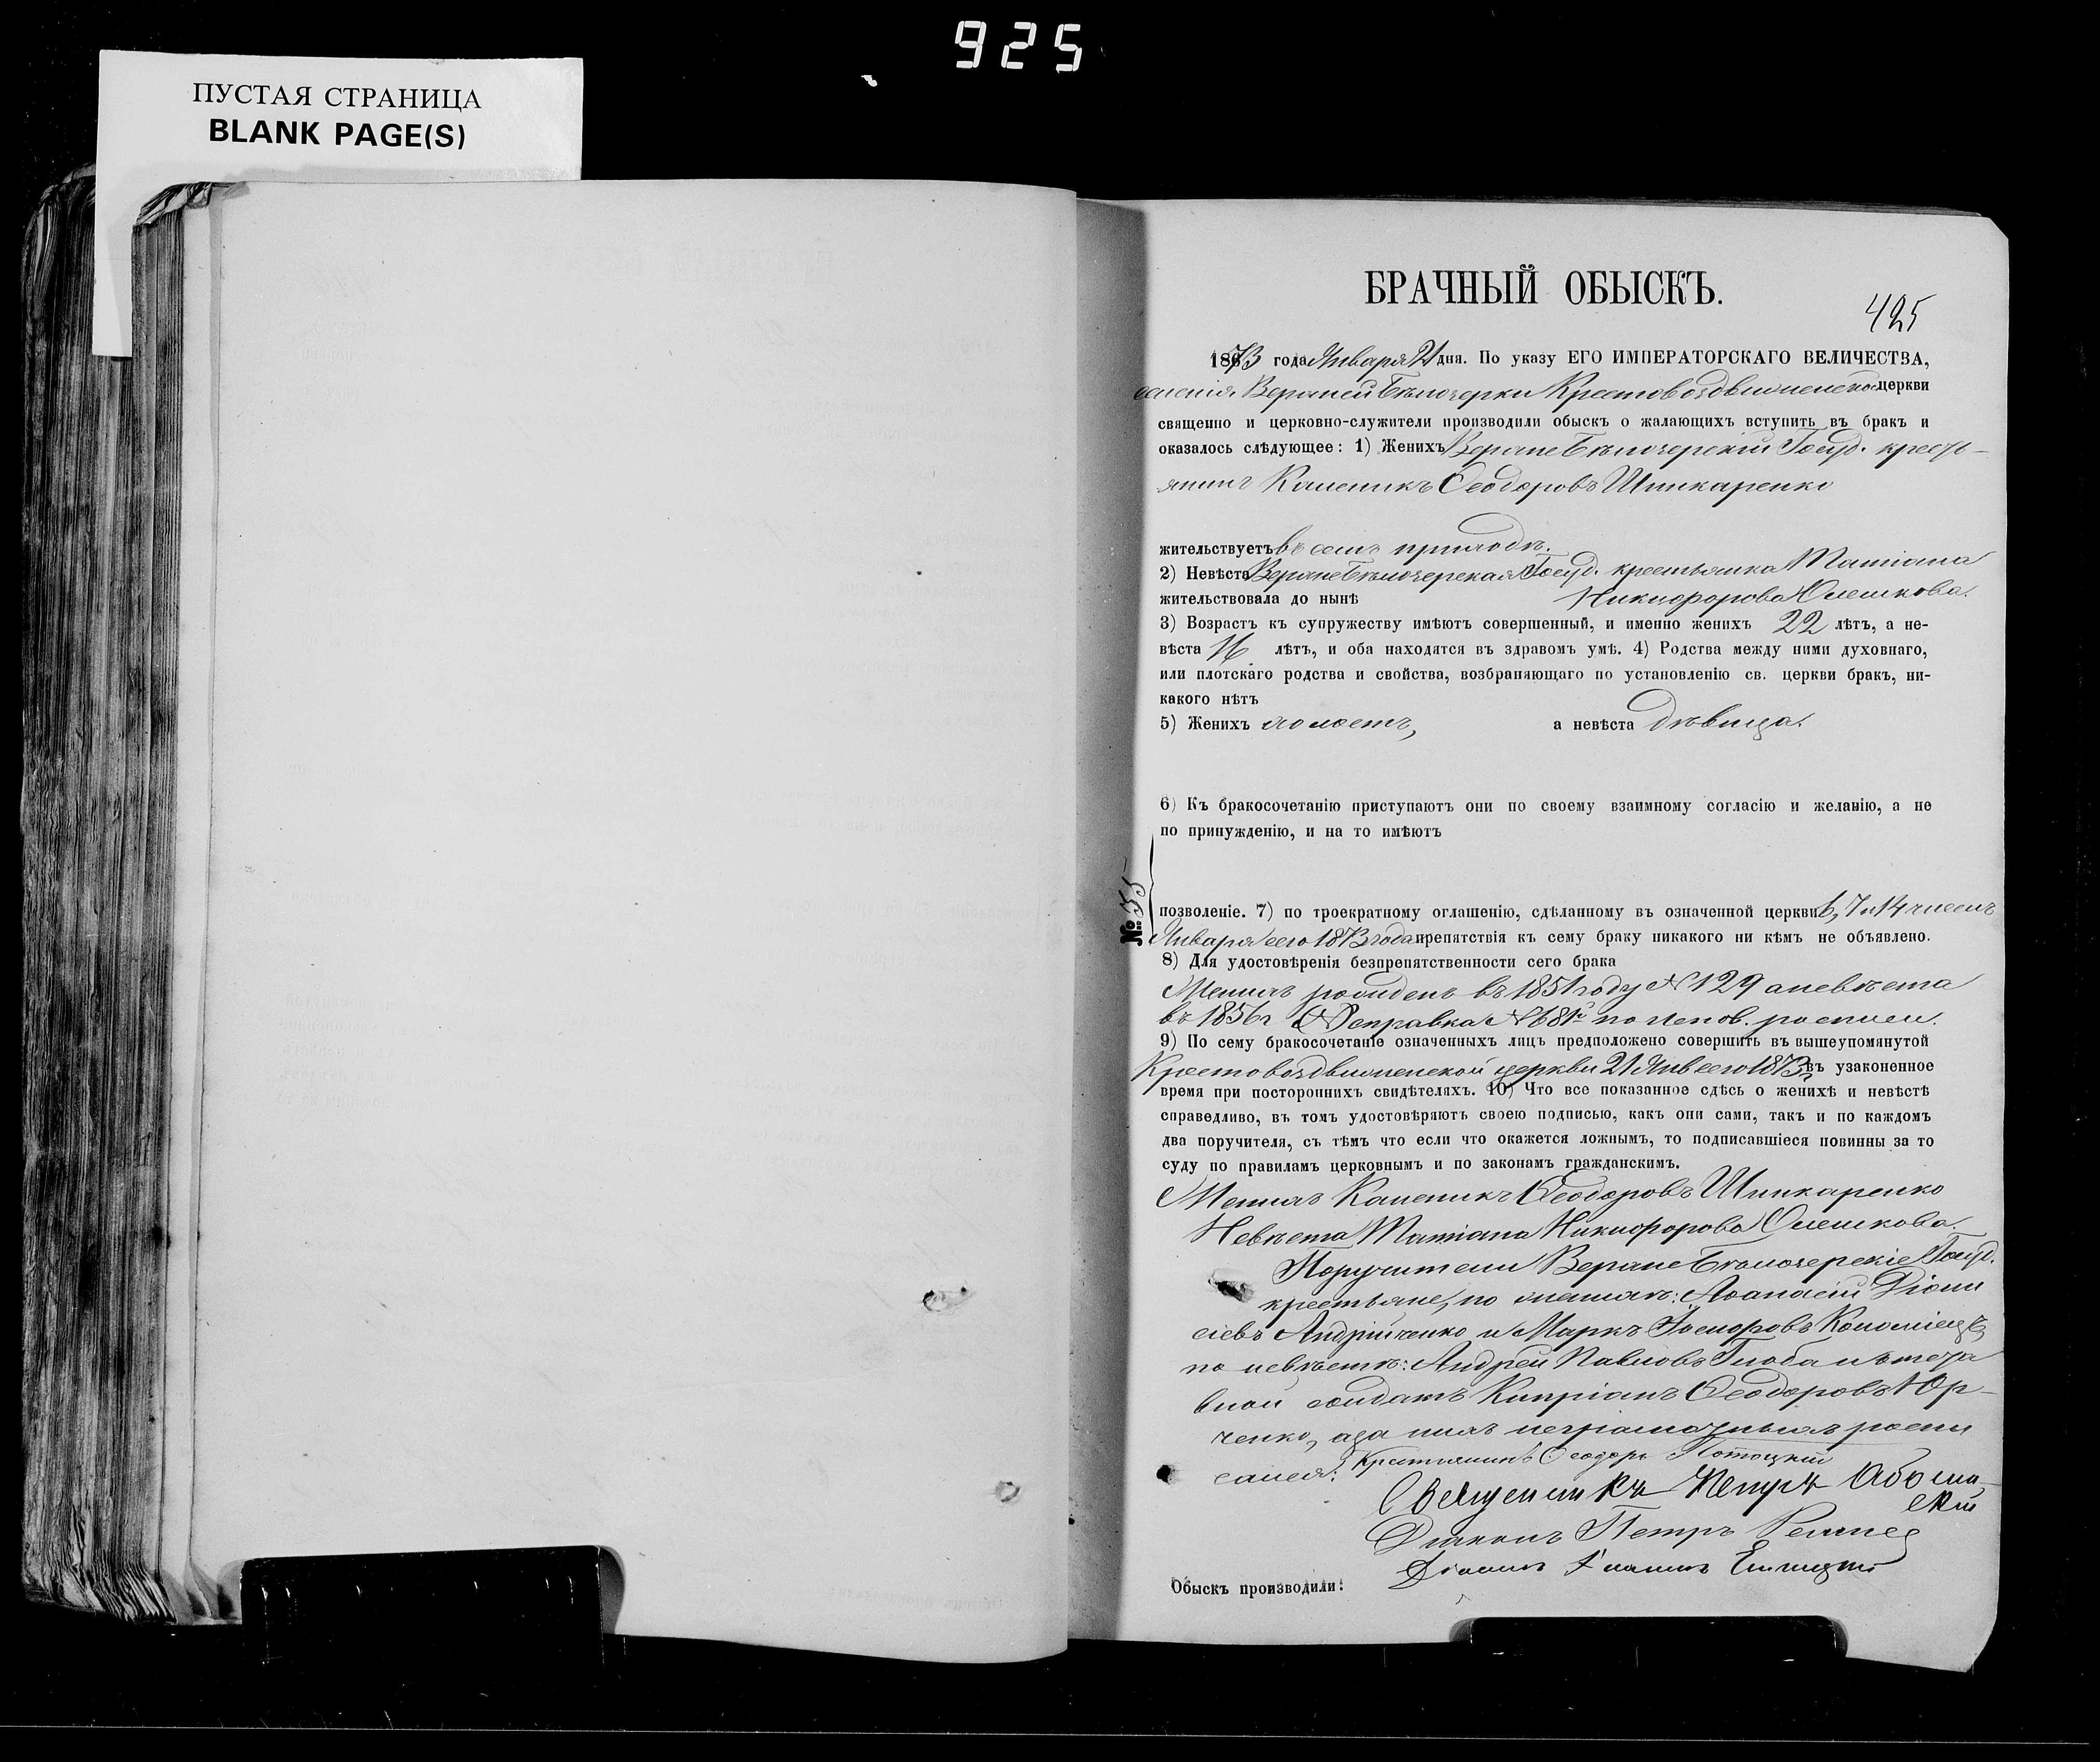 925
ПУСТАЯ СТРАНИЦА
BLANK PAGE(S)
БРАЧНЫЙ ОБЫСКЪ.
425
1873 года Января 21 дня. По указу ЕГО ИМПЕРАТОРСКАГО ВЕЛИЧЕСТВА,
селенія Верхней Бѣлозерки Крестовоздвиженской церкви
священно и церковно-служители производили обыскъ о жалающихъ вступить въ бракъ и
оказалось слѣдующее: 1) Женихъ Верхнебѣлозерскій Госуд. кресть-
янинъ Каленикъ Ѳеодоровъ Шинкаренко
жительствуетъ въ семъ приходѣ.
2) Невѣста Верхнебѣлозерская Госуд. крестьянка Татіана
жительствовала до нынѣ Никифорова Олешкова.
3) Возрастъ къ супружеству имѣютъ совершенный, и именно женихъ 22 лѣтъ, а не-
вѣста 16 лѣтъ, и оба находятся въ здравомъ умѣ. 4) Родства между ними духовнаго,
или плотскаго родства и свойства, возбраняющаго по установленію св. церкви бракъ, ни-
какого нѣтъ
5) Женихъ холостъ, а невѣста дѣвица.
6) Къ бракосочетанію приступаютъ они по своему взаимному согласію и желанію, а не
по принужденію, и на то имѣютъ
№ 35
позволеніе. 7) по троекратному оглашенію, сдѣланному въ означенной церкви 6, 7 и 14 чиселъ
Января сего 1873 года препятствія къ сему браку никакого ни кѣмъ не объявлено.
8) Для удостовѣренія безпрепятственности сего брака
Женихъ рожденъ въ 1851 году № 129 а невѣста
въ 1856 г. справка № 68 по испов. росписи.
9) По сему бракосочетаніе означенныхъ лицъ предположено совершить въ вышеупомянутой
Крестовоздвиженской церкви 21 Янв сего 1873 г въ узаконенное
время при постороннихъ свидѣтеляхъ. 10) Что все показанное сдѣсь о женихѣ и невѣстѣ
справедливо, въ томъ удостовѣряютъ своею подписью, какъ они сами, такъ и по каждомъ
два поручителя, съ тѣмъ что если что окажется ложнымъ, то подписавшіеся повинны за то
суду по правиламъ церковнымъ и по законамъ гражданскимъ.
Женихъ Каленикъ Ѳеодоровъ Шинкаренко
Невѣста Татіана Никифорова Олешкова.
Поручители Верхнебѣлозерскіе Госуд.
крестьяне, по женихѣ: Аѳанасій Діони
сіевъ Андрійченко и Маркъ Коломіецъ,
по невѣстѣ: Андрей Павловъ Глоба и
солдатъ Кипріанъ Ѳеодоровъ Юр-
ченко, а за нихъ неграмотныхъ роспи
сался: Крестьянинъ Ѳеодоръ Потоцкій
Священникъ Петръ
ский
Діаконъ Петръ
Обыскъ производили: